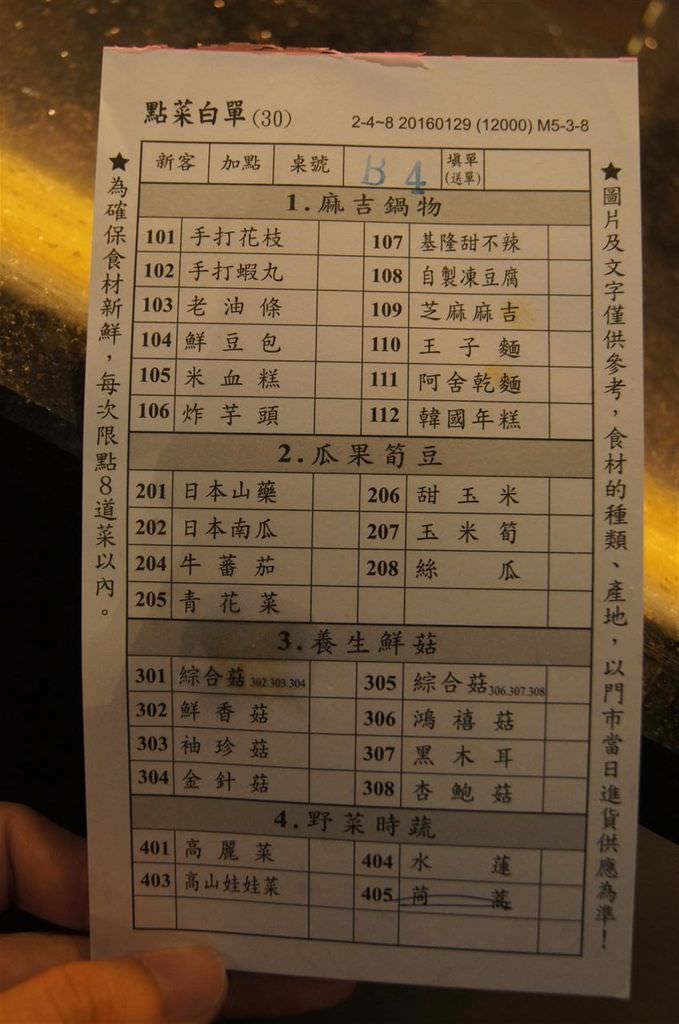 點菜白單(30) 2-4~8 20160129 (12000) M5-3-8
新客 加點 桌號 B 4 填單(送單)
★為確保食材新鮮，每次限點8道菜以內。
1.麻吉鍋物
101 手打花枝 107 基隆甜不辣
102 手打蝦丸 108 自製凍豆腐
103 老油條 109 芝麻麻吉
104 鮮豆包 110 王子麵
105 米血糕 111 阿舍乾麵
106 炸芋頭 112 韓國年糕
2.瓜果筍豆
201 日本山藥 206 甜玉米
202 日本南瓜 207 玉米筍
204 牛蕃茄 208 絲瓜
205 青花菜
3.養生鮮菇
301 綜合菇302.303.304 305 綜合菇306.307.308
302 鮮香菇 306 鴻禧菇
303 袖珍菇 307 黑木耳
304 金針菇 308 杏鮑菇
4.野菜時蔬
401 高麗菜 404 水蓮
403 高山娃娃菜 405 茼蒿
★圖片及文字僅供參考，食材的種類、產地，以門市當日進貨供應為準！